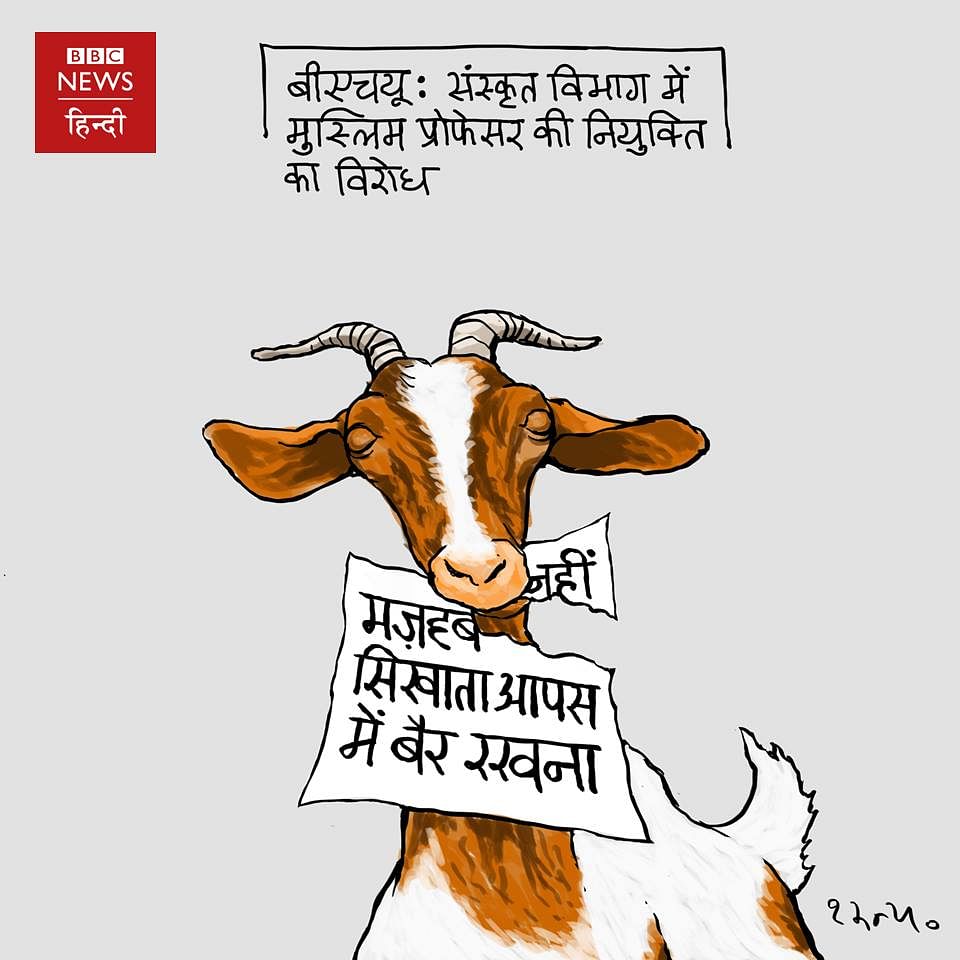 BBC
NEWS
हिन्दी
बीएचयू: संस्कृत विभाग में
मुस्लिम प्रोफेसर की नियुक्ति
का विरोध
नहीं
मज़हब
सिखाता आपस
में बैर रखना